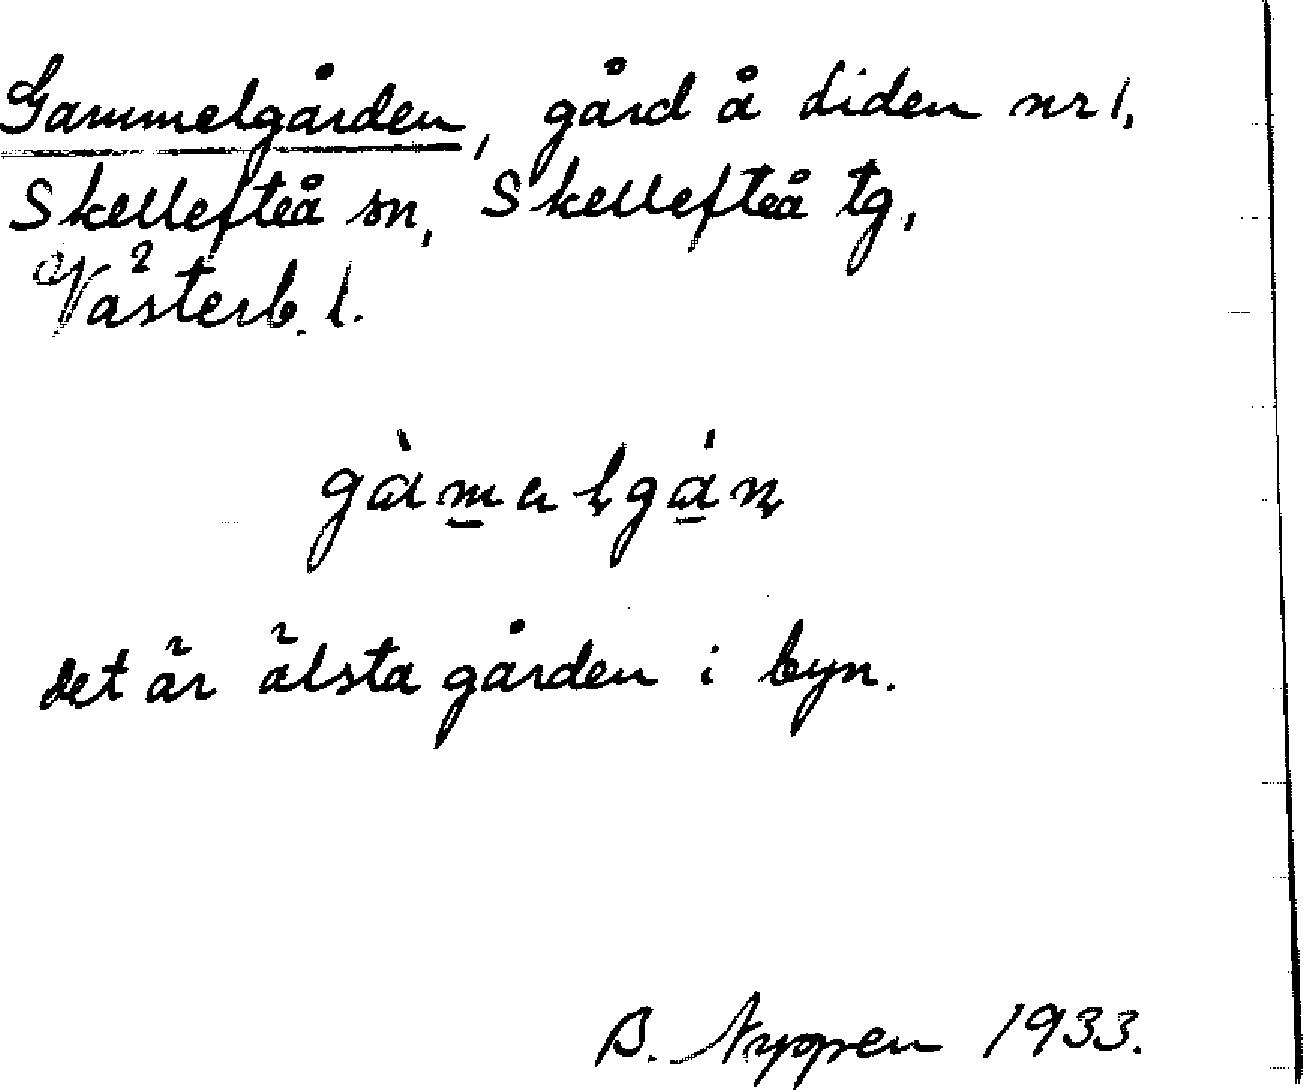 Gammelgården, gård å Liden nr 1,
Skellefteå sn, Skellefteå tg,
Västerb. l.
gàmalgán
det är älsta gården i byn.
B. Nyppen 1933.